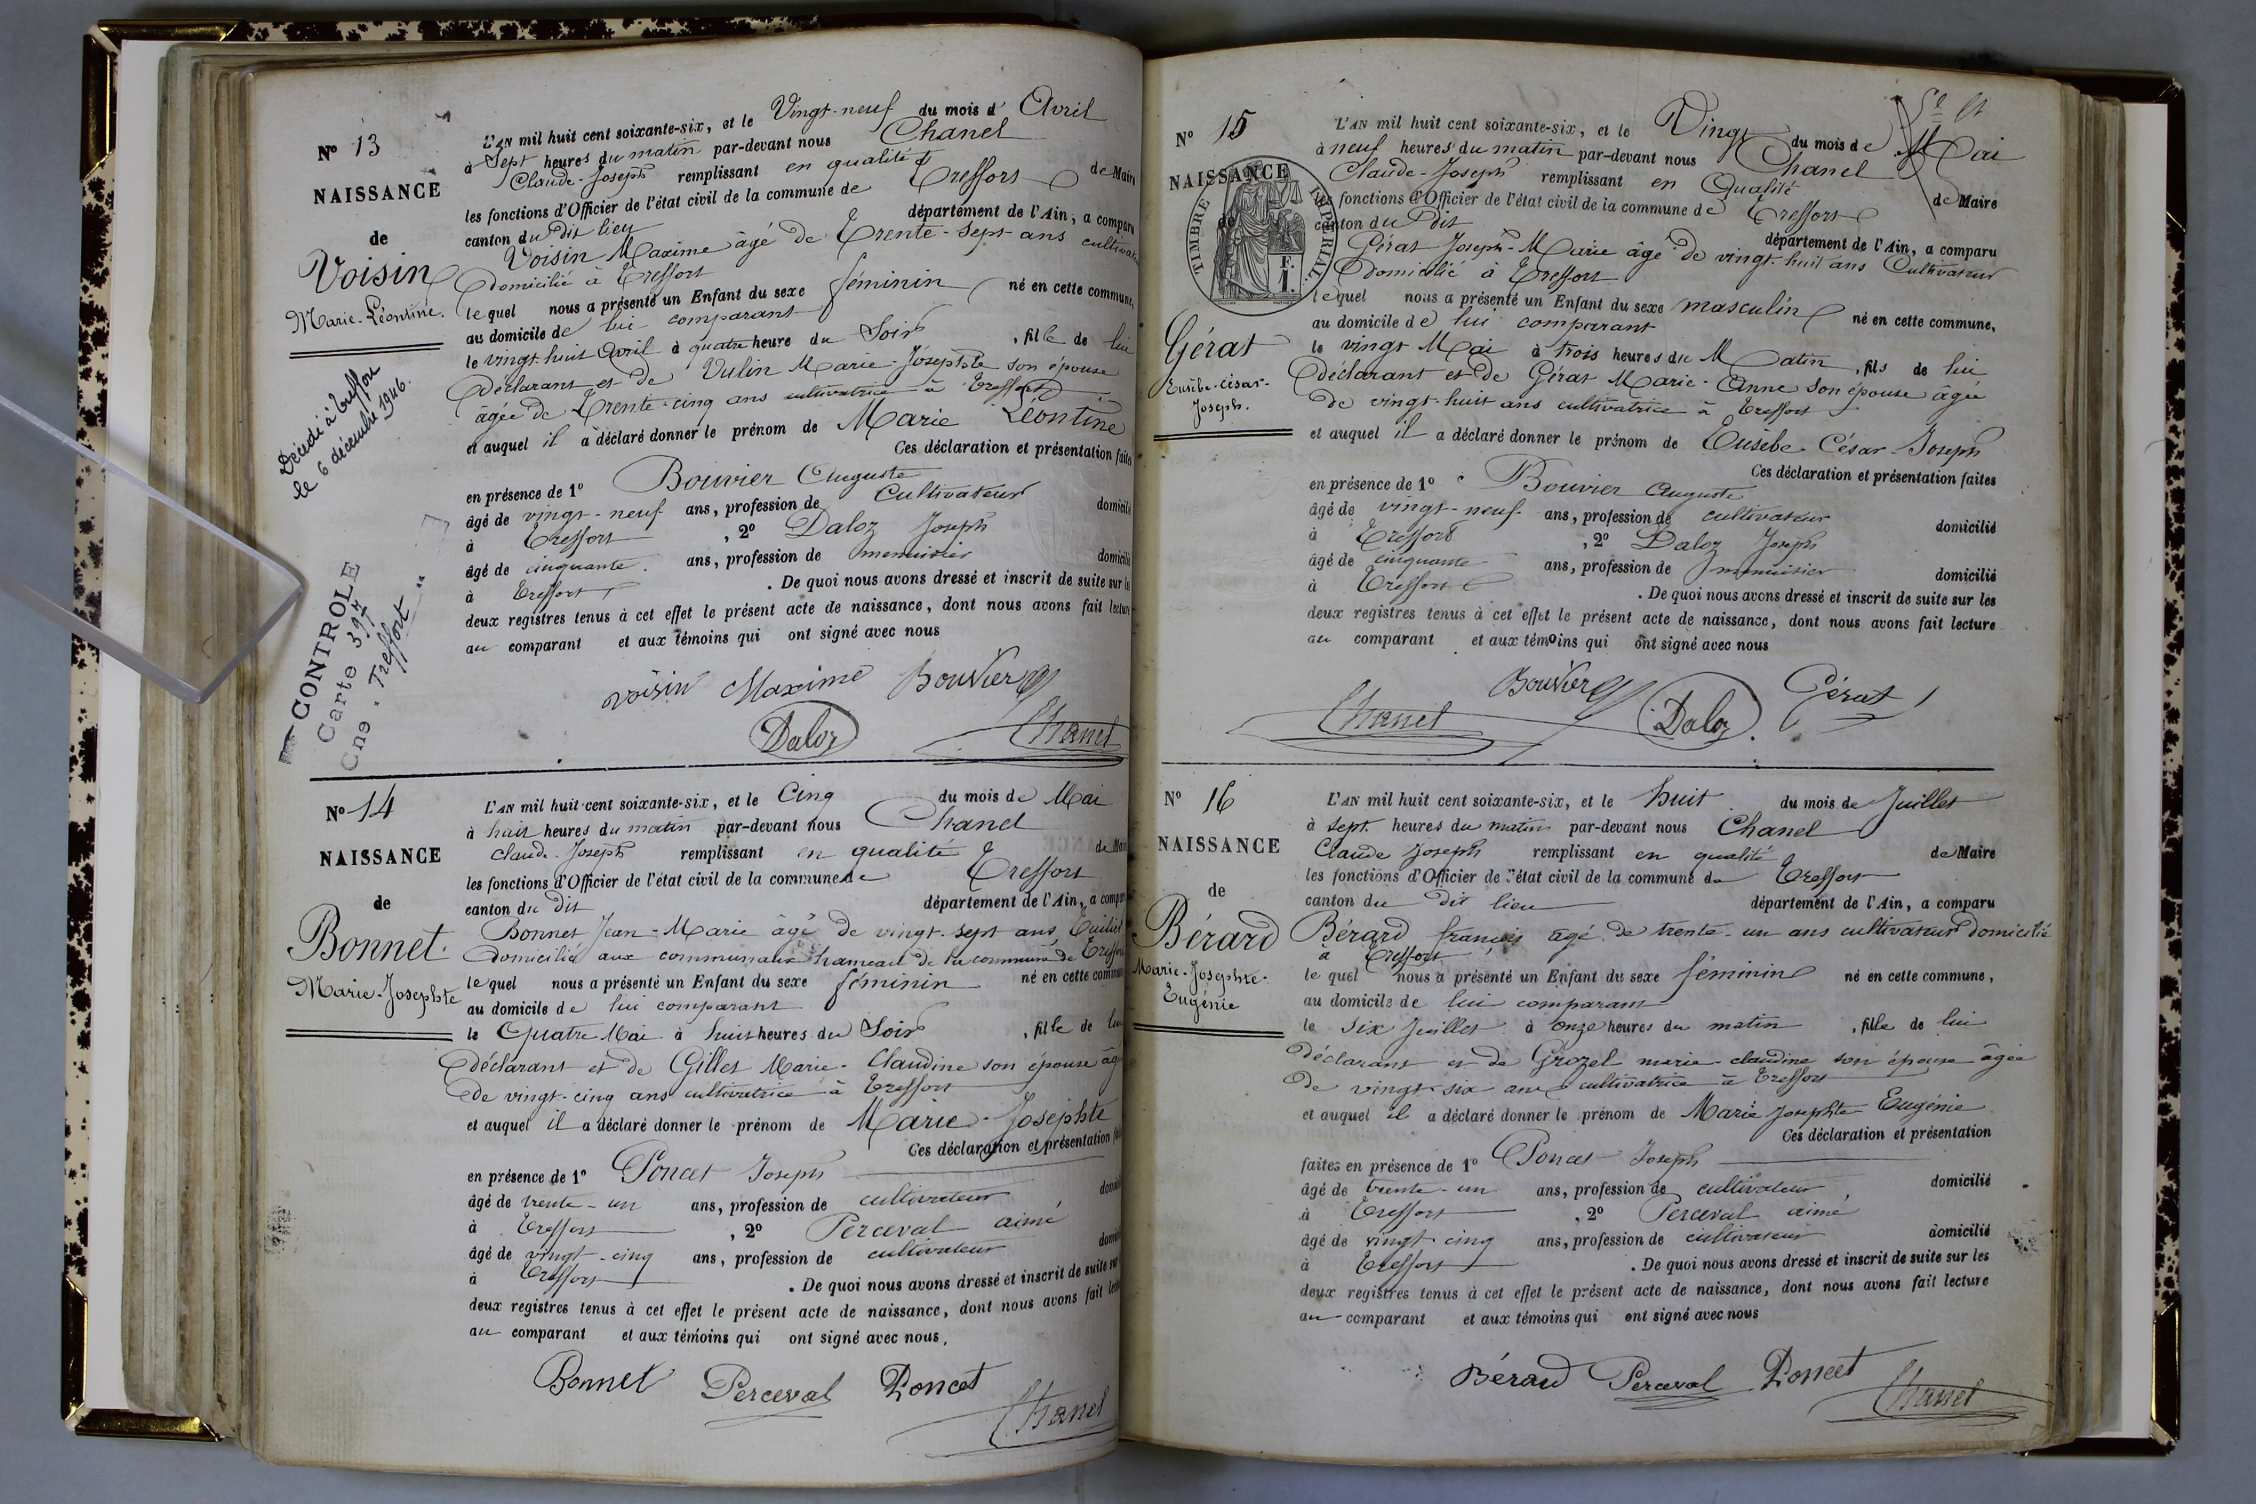 N° 13
NAISSANCE
de
Voisin
Marie-Léontine.
Décédé à Treffort
le 6 décembre 1946.
CONTROLE
Carte 397
Cne. Treffort
L'AN mil huit cent soixante-six, et le Vingt-neuf du mois d'Avril
à Sept heures du matin par-devant nous Chanel
Claude-Joseph remplissant en qualité de Maire
les fonctions d'Officier de l'état civil de la commune de Treffort
canton du dit lieu département de l'Ain, a comparu
Voisin Maxime âgé de Trente-sept ans cultivateur
domicilié à Treffort
lequel nous a présenté un Enfant du sexe féminin né en cette commune,
au domicile de lui comparant
le vingt-huit Avril à quatre heure du Soir, fille de lui
déclarant et de Vulin Marie-Joséphte son épouse
âgée de Trente-cinq ans cultivatrice à Treffort
et auquel il a déclaré donner le prénom de Marie Léontine
Ces déclaration et présentation faites
en présence de 1° Bouvier Auguste
âgé de vingt-neuf ans, profession de Cultivateur domicilié
à Treffort, 2° Daloz Joseph
âgé de cinquante ans, profession de menuisier domicilié
à Treffort. De quoi nous avons dressé et inscrit de suite sur les
deux registres tenus à cet effet le présent acte de naissance, dont nous avons fait lecture
au comparant et aux témoins qui ont signé avec nous
voisin Maxime Bouvier
Daloz Chanel
N° 14
NAISSANCE
de
Bonnet
Marie-Josephte
L'AN mil huit cent soixante-six, et le Cinq du mois de Mai
à huit heures du matin par-devant nous Chanel
Claude-Joseph remplissant en qualité de Maire
les fonctions d'Officier de l'état civil de la commune de Treffort
canton du dit département de l'Ain, a comparu
Bonnet Jean-Marie âgé de vingt-sept ans
domicilié aux communaux hameau de la commune de Treffort
lequel nous a présenté un Enfant du sexe féminin né en cette commune
au domicile de lui comparant
le Quatre Mai à huit heures du Soir, fille de lui
déclarant et de Gillet Marie-Claudine son épouse âgée
de vingt-cinq ans cultivatrice à Treffort
et auquel il a déclaré donner le prénom de Marie-Josephte
Ces déclaration et présentation faites
en présence de 1° Poncet Joseph
âgé de trente-un ans, profession de cultivateur domicilié
à Treffort, 2° Perceval aimé
âgé de vingt-cinq ans, profession de cultivateur domicilié
à Treffort. De quoi nous avons dressé et inscrit de suite sur
deux registres tenus à cet effet le présent acte de naissance, dont nous avons fait lecture
au comparant et aux témoins qui ont signé avec nous.
Bonnet Perceval Poncet
Chanel
N° 15
NAISSANCE
de
TIMBRE IMPERIAL
F.
1.
Gérat
Eusèbe-César-
Joseph.
L'AN mil huit cent soixante-six, et le Vingt du mois de Mai
à neuf heures du matin par-devant nous Chanel
Claude-Joseph remplissant en Qualité de Maire
les fonctions d'Officier de l'état civil de la commune de Treffort
canton du Dit département de l'Ain, a comparu
Gérat Joseph-Marie âgé de vingt-huit ans Cultivateur
domicilié à Treffort
lequel nous a présenté un Enfant du sexe masculin né en cette commune,
au domicile de lui comparant
le vingt Mai à trois heures du Matin, fils de lui
déclarant et de Gérat Marie-Anne son épouse âgée
de vingt-huit ans cultivatrice à Treffort
et auquel il a déclaré donner le prénom de Eusèbe César Joseph
Ces déclaration et présentation faites
en présence de 1° Bouvier Auguste
âgé de vingt-neuf ans, profession de cultivateur domicilié
à Treffort, 2° Daloz Joseph
âgé de cinquante ans, profession de menuisier domicilié
à Treffort. De quoi nous avons dressé et inscrit de suite sur les
deux registres tenus à cet effet le présent acte de naissance, dont nous avons fait lecture
au comparant et aux témoins qui ont signé avec nous
Bouvier Gérat
Chanel Daloz
N° 16
NAISSANCE
de
Bérard
Marie-Josephte-
Eugénie
L'AN mil huit cent soixante-six, et le huit du mois de Juillet
à sept heures du matin par-devant nous Chanel
Claude Joseph remplissant en qualité de Maire
les fonctions d'Officier de l'état civil de la commune de Treffort
canton du dit lieu département de l'Ain, a comparu
Bérard françois âgé de trente-un ans cultivateur domicilié
à Treffort
lequel nous a présenté un Enfant du sexe féminin né en cette commune,
au domicile de lui comparant
le six Juillet à onze heures du matin, fille de lui
déclarant et de Grozel marie-claudine son épouse âgée
de vingt-six ans cultivatrice à Treffort
et auquel il a déclaré donner le prénom de Marie Josephte Eugénie
Ces déclaration et présentation
faites en présence de 1° Poncet Joseph
âgé de trente-un ans, profession de cultivateur domicilié
à Treffort, 2° Perceval aimé
âgé de vingt cinq ans, profession de cultivateur domicilié
à Treffort. De quoi nous avons dressé et inscrit de suite sur les
deux registres tenus à cet effet le présent acte de naissance, dont nous avons fait lecture
au comparant et aux témoins qui ont signé avec nous
Bérard Perceval Poncet
Chanel